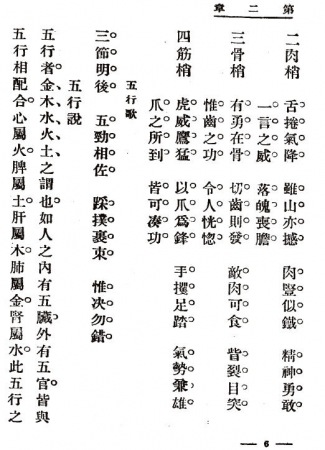 第二章
二肉梢　舌捲氣降。雖山亦撼。肉豎似鐵。精神勇敢。
一言之威。落魄喪膽。
三骨梢　有勇在骨。切齒則發。敵肉可食。眥裂目突。
惟齒之功。令人恍惚。
四筋梢　虎威鷹猛。以爪爲鋒。手攫足踏。氣勢兼雄。
爪之所到。皆可凑功。
五行歌
三節明後。五勁相佐。踩撲裹束。惟决勿錯。
五行說
五行者。金木水火土之謂也。如人之內有五臟。外有五官。皆與
五行相配合。心屬火。脾屬土。肝屬木。肺屬金。腎屬水。此五行之
— 6 —